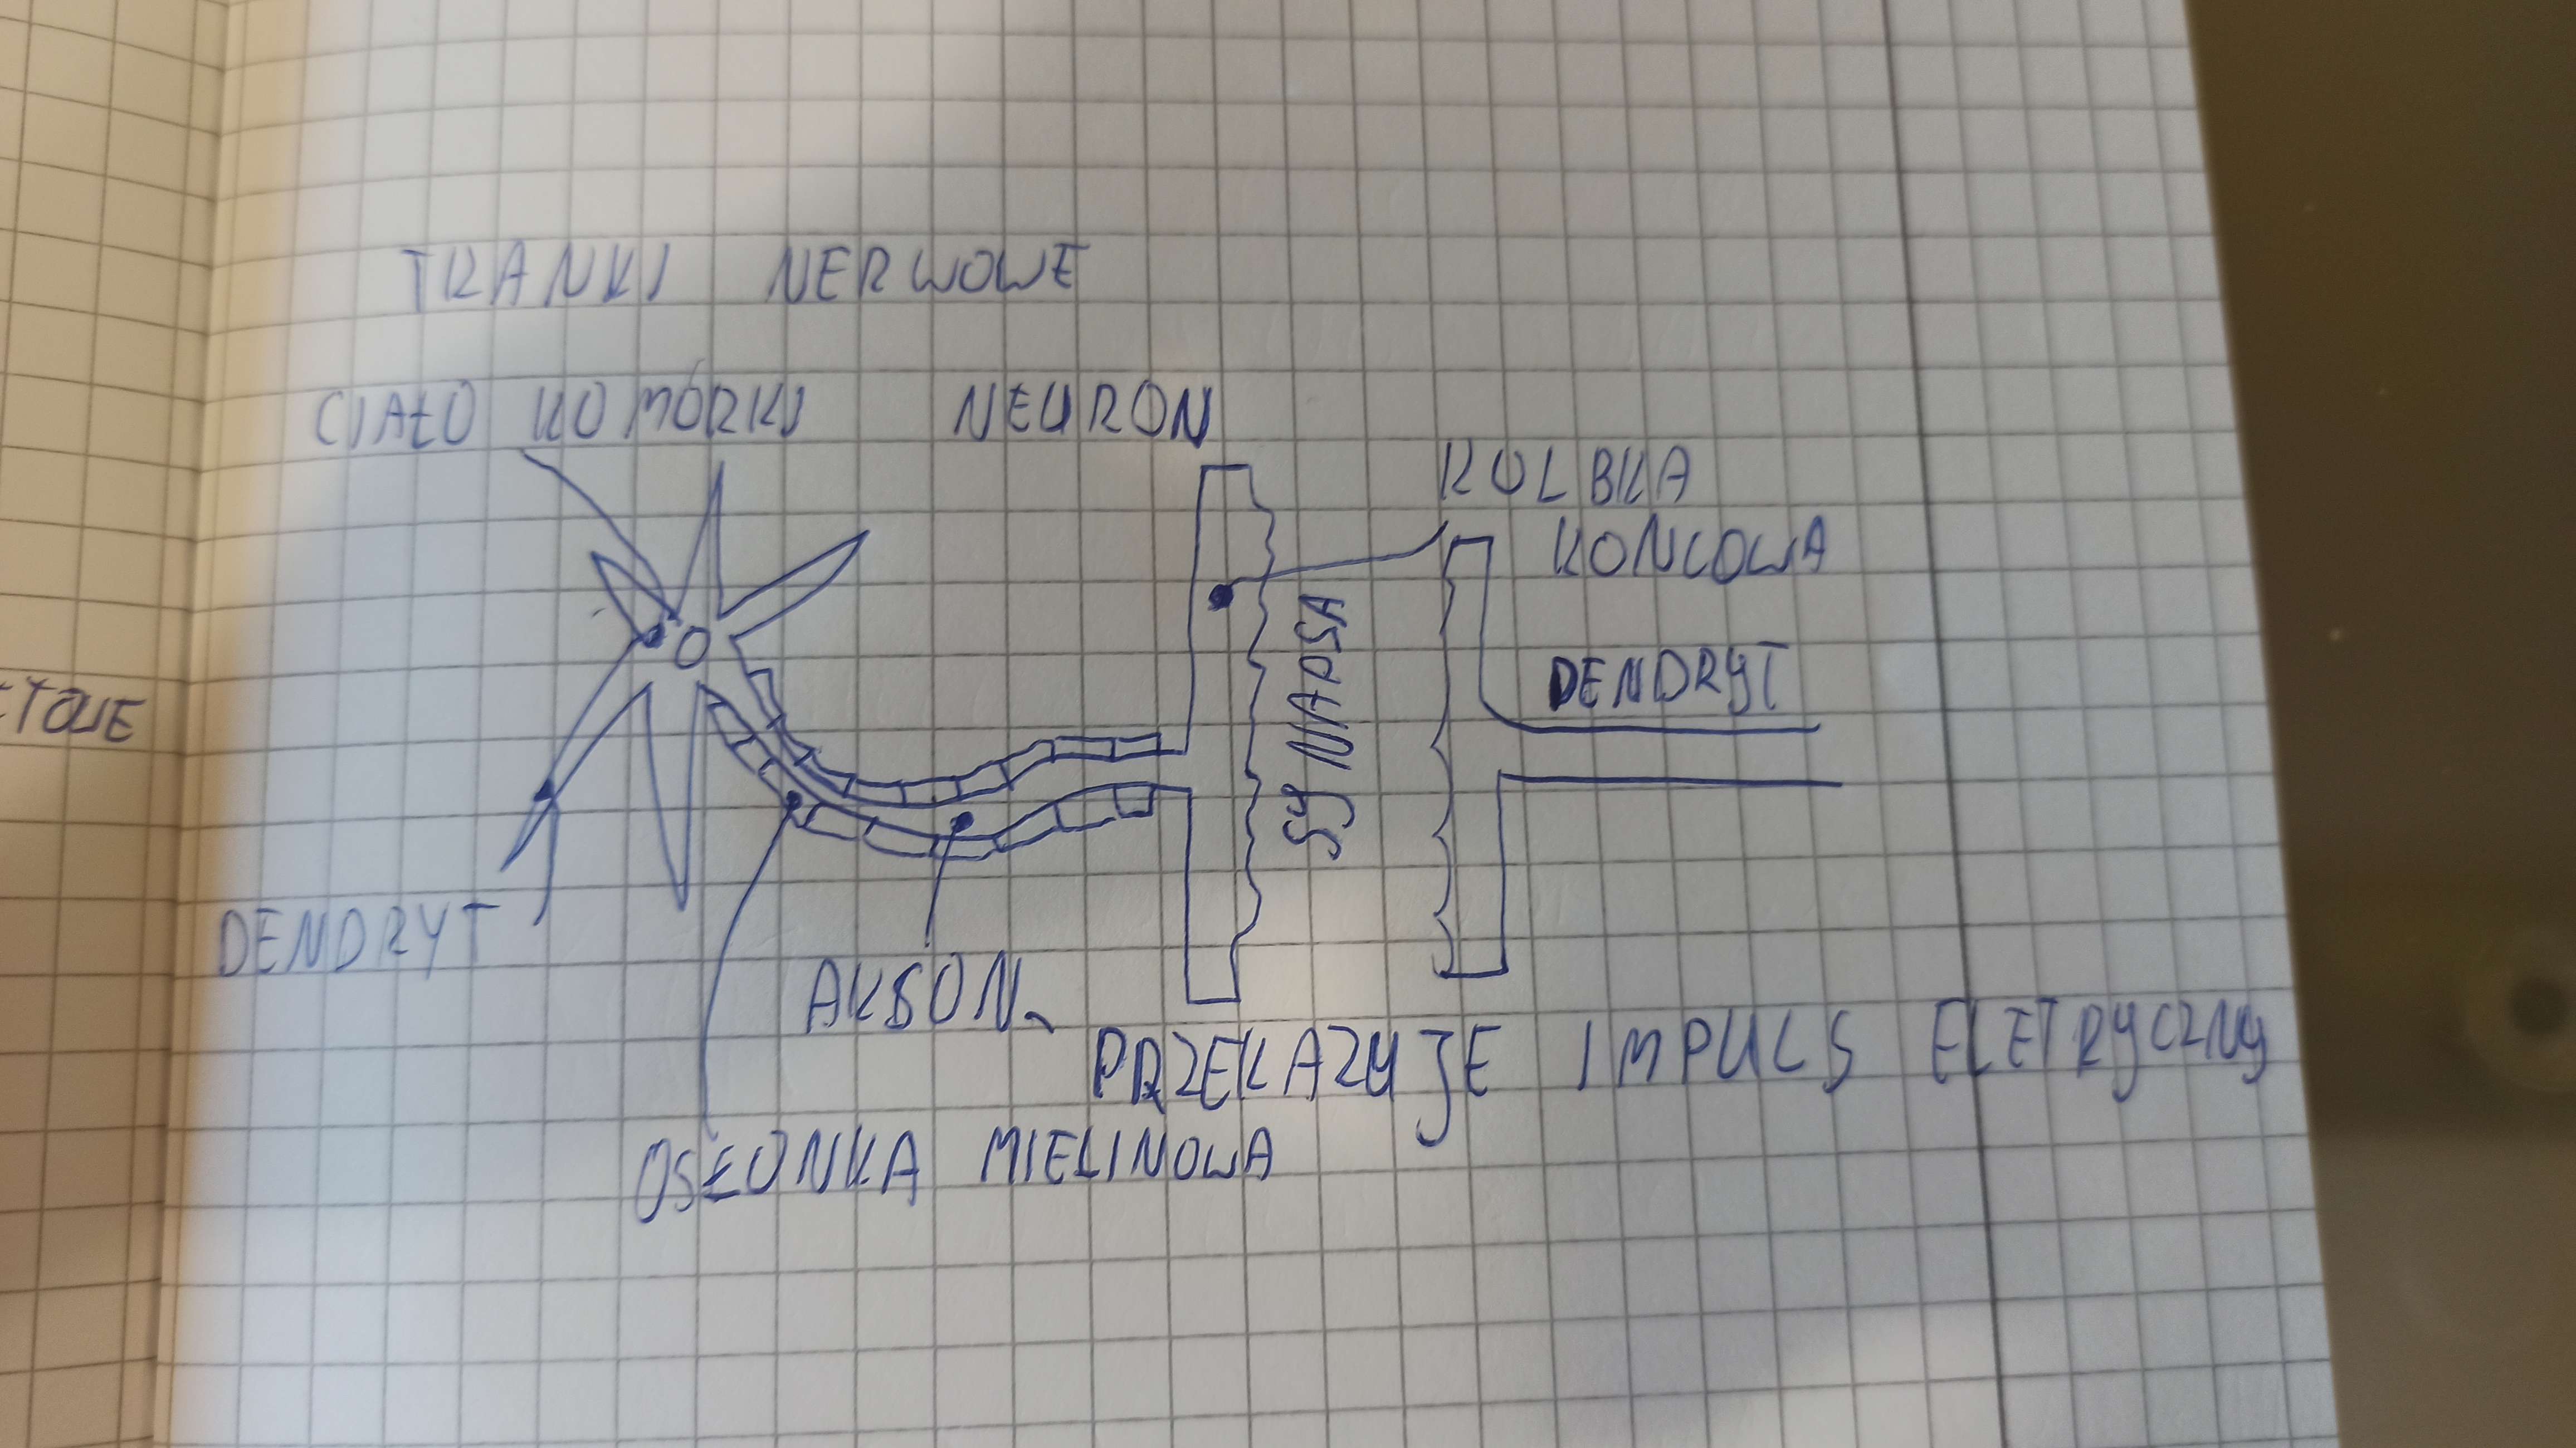 TKANKI NERWOWE
CIAŁO KOMÓRKI NEURON
KOLBKA
KONCOWA
SYNAPSA
DENDRYT
DENDRYT
AKSON
PRZEKAZUJE IMPULS ELETRYCZNY
OSŁONKA MIELINOWA